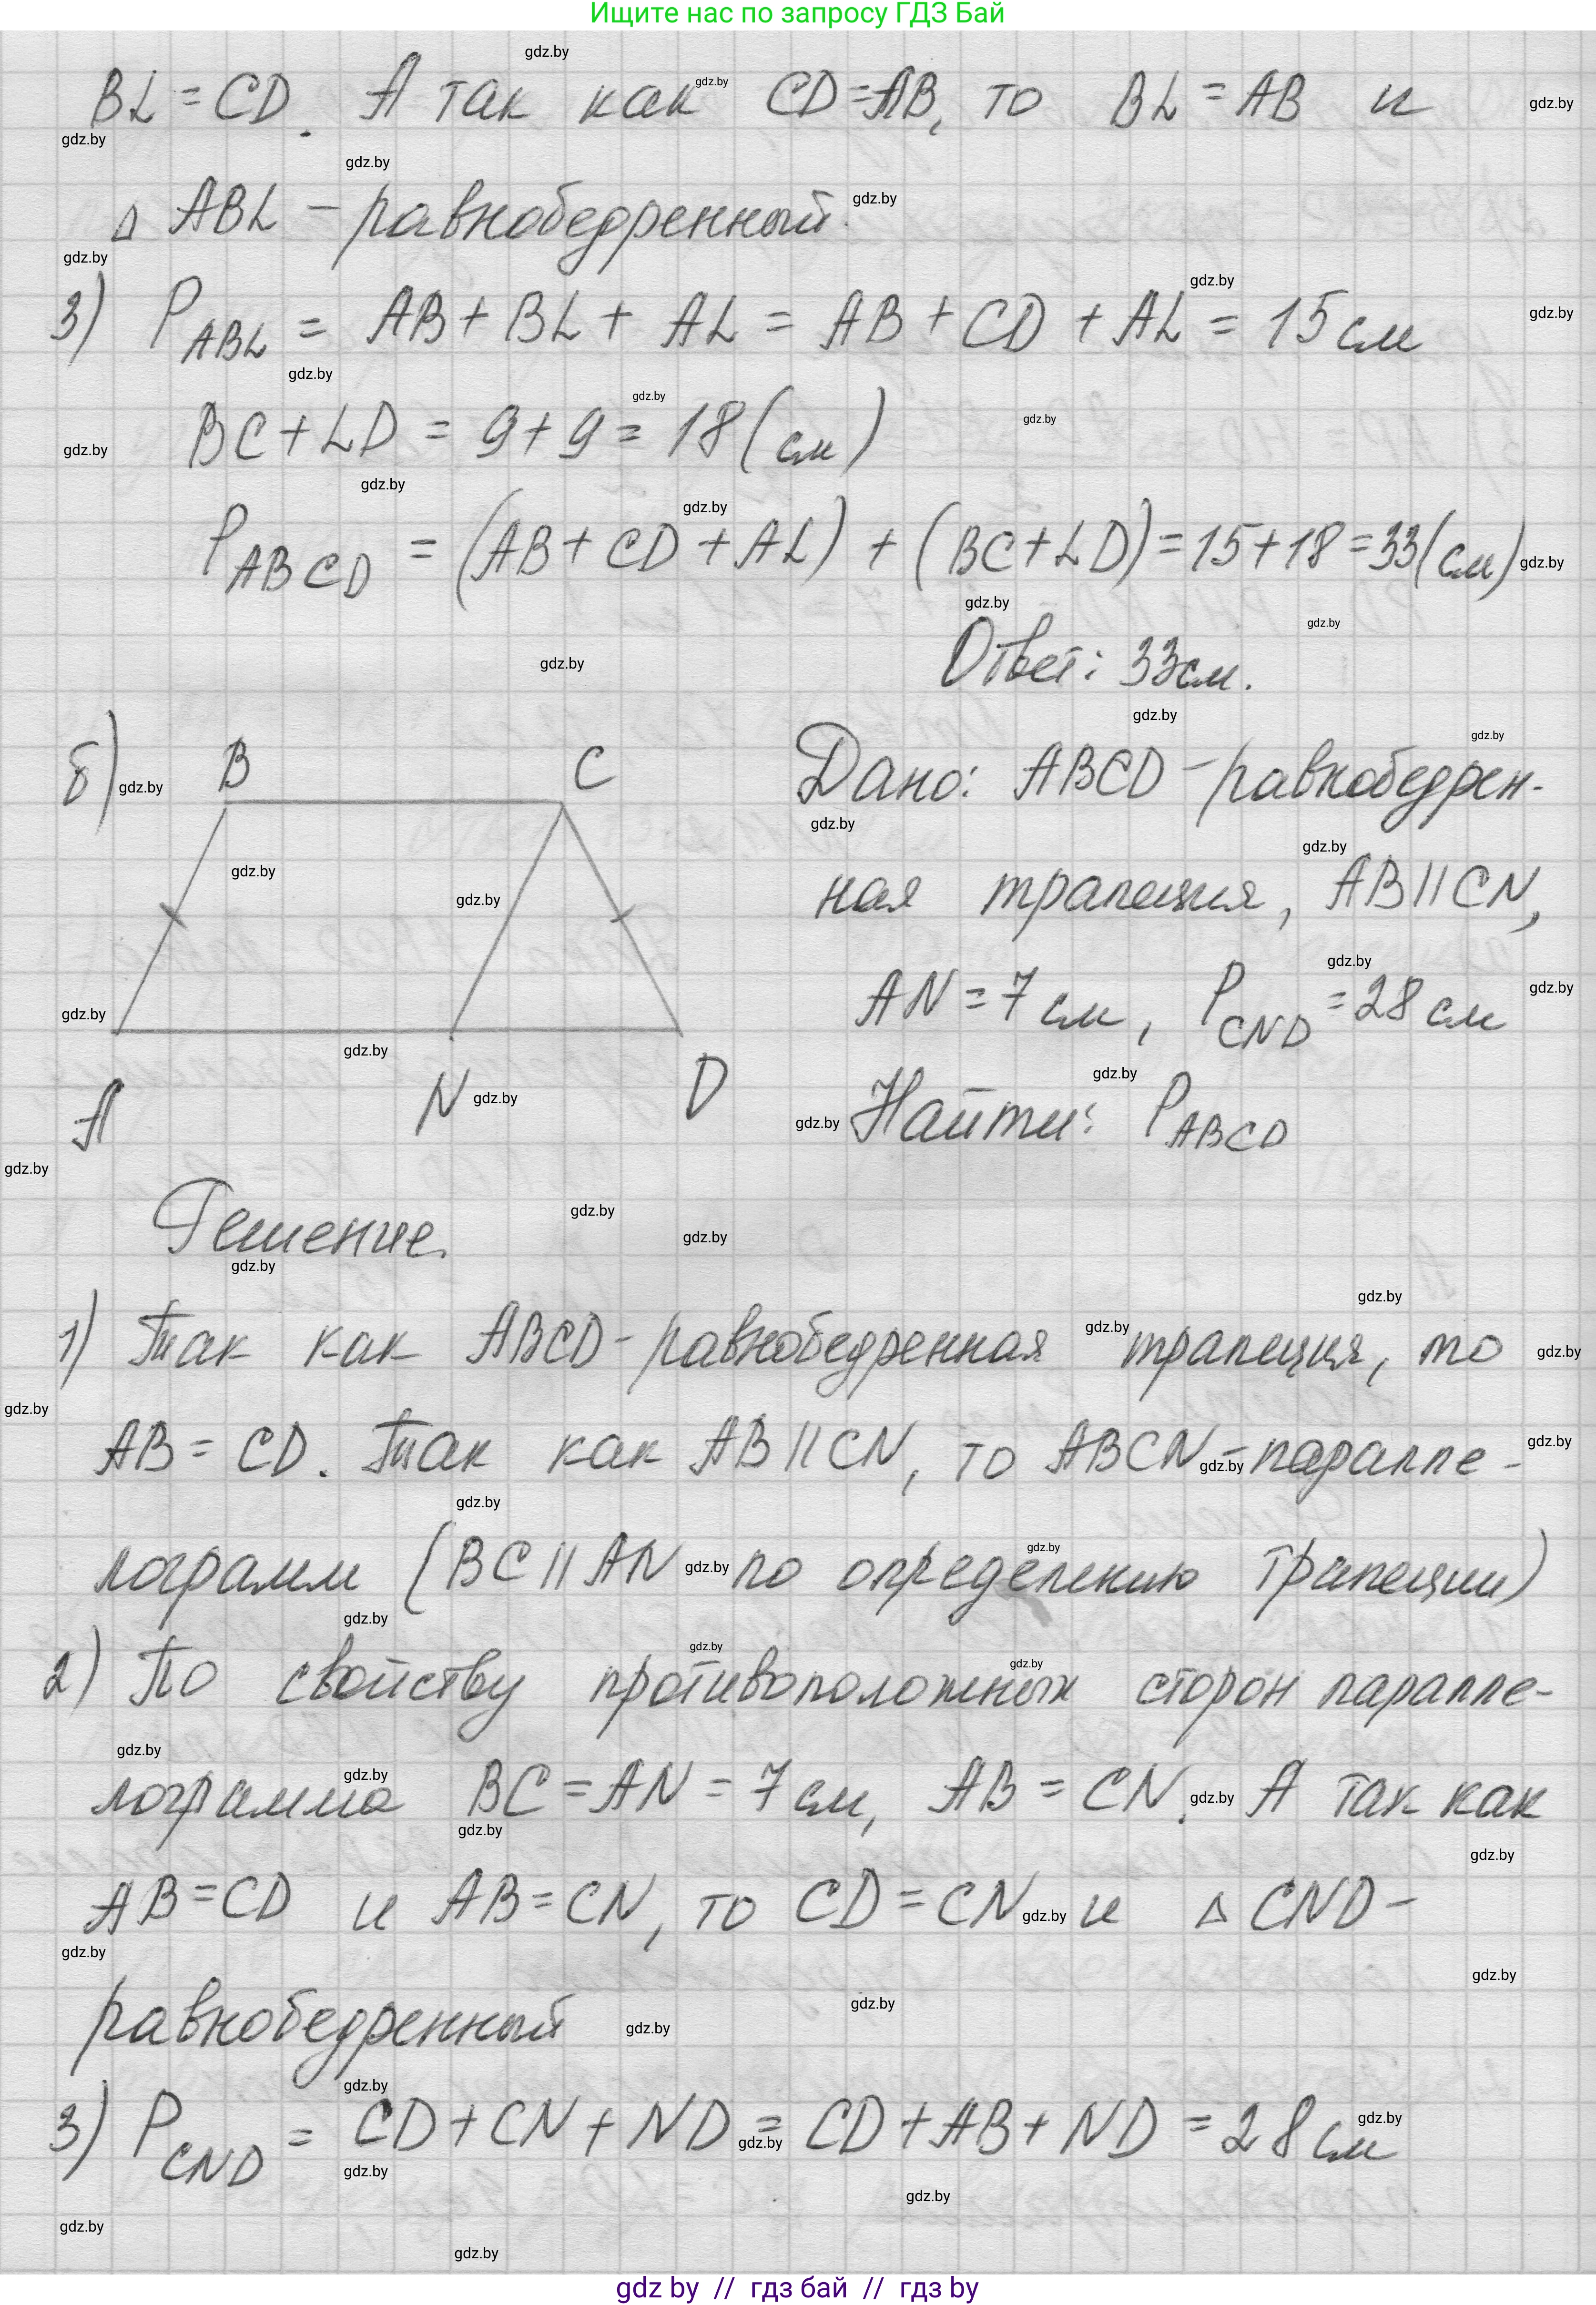 Ищите нас по запросу ГДЗ Бай
BL = CD. А так как CD=AB, то BL = AB и
Δ ABL - равнобедренный.
3) P_ABL = AB + BL + AL = AB + CD + AL = 15 см
BC + LD = 9 + 9 = 18 (см)
P_ABCD = (AB + CD + AL) + (BC + LD) = 15 + 18 = 33 (см)
Ответ: 33 см.
б) B C
A N D
Дано: ABCD - равнобедрен-
ная трапеция, AB || CN,
AN = 7 см, P_CND = 28 см
Найти: P_ABCD
Решение.
1) Так как ABCD - равнобедренная трапеция, то
AB = CD. Так как AB || CN, то ABCN - паралле-
лограмм (BC || AN по определению трапеции)
2) По свойству противоположных сторон паралле-
лограмма BC = AN = 7 см, AB = CN. А так как
AB = CD и AB = CN, то CD = CN и Δ CND -
равнобедренный
3) P_CND = CD + CN + ND = CD + AB + ND = 28 см
gdz by // гдз бай // гдз by